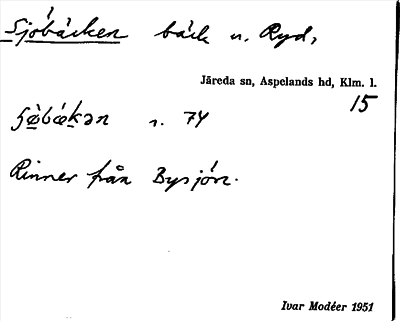 Sjöbäcken bäck n. Ryd,
Järeda sn, Aspelands hd, Klm. l.
15
r. 74
Rinner från Bysjön.
Ivar Modéer 1951